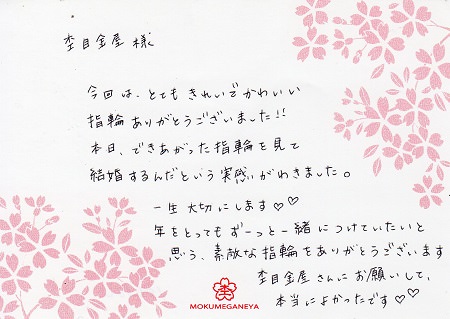 杢目金屋 様
今回は、とてもきれいでかわいい
指輪ありがとうございました!!
本日、できあがった指輪を見て
結婚するんだという実感がわきました。
一生大切にします♡♡
年をとってもずーっと一緒につけていたいと
思う、素敵な指輪をありがとうございます
杢目金屋さんにお願いして、
本当によかったです♡♡
MOKUMEGANEYA